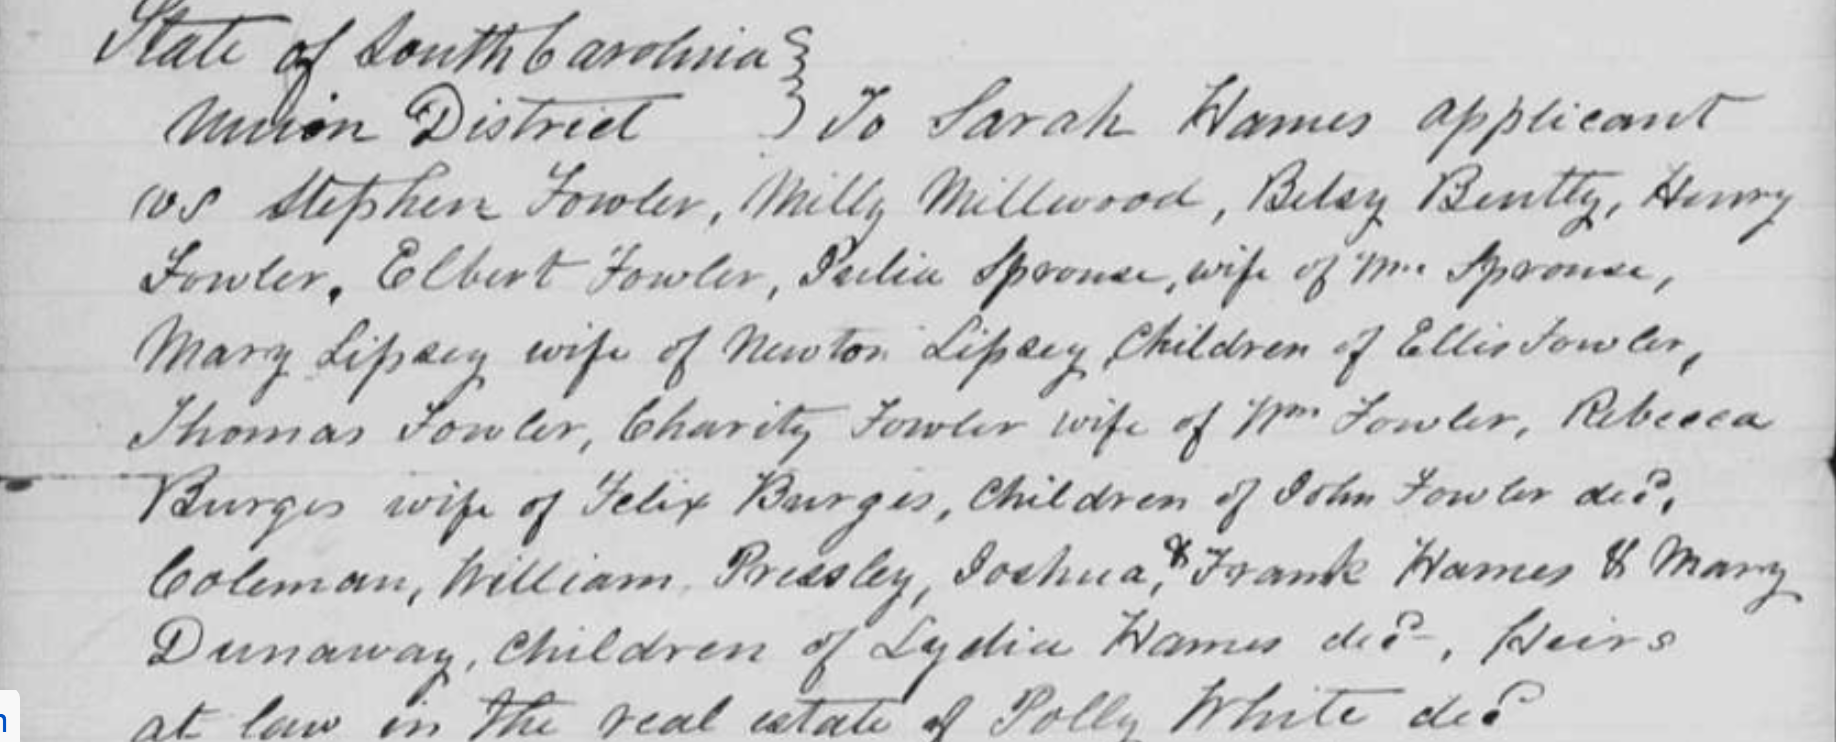 State of South Carolina
Union District } To Sarah Hames applicant
vs Stephen Fowler, Milly Millwood, Betsy Bentty, Henry
Fowler, Elbert Fowler, Sprouse, wife of Sprouse,
Mary Lipsey wife of Newton Lipsey, Children of Ellis Fowler,
Thomas Fowler, Charity Fowler wife of Wm Fowler, Rebecca
Burges wife of Felix Burges, Children of John Fowler decd,
Coleman, William, Pressley, Joshua, & Frank Hames & Mary
Dunaway, Children of Lydia Hames decd, Heirs
at law in the real estate of Polly White decd